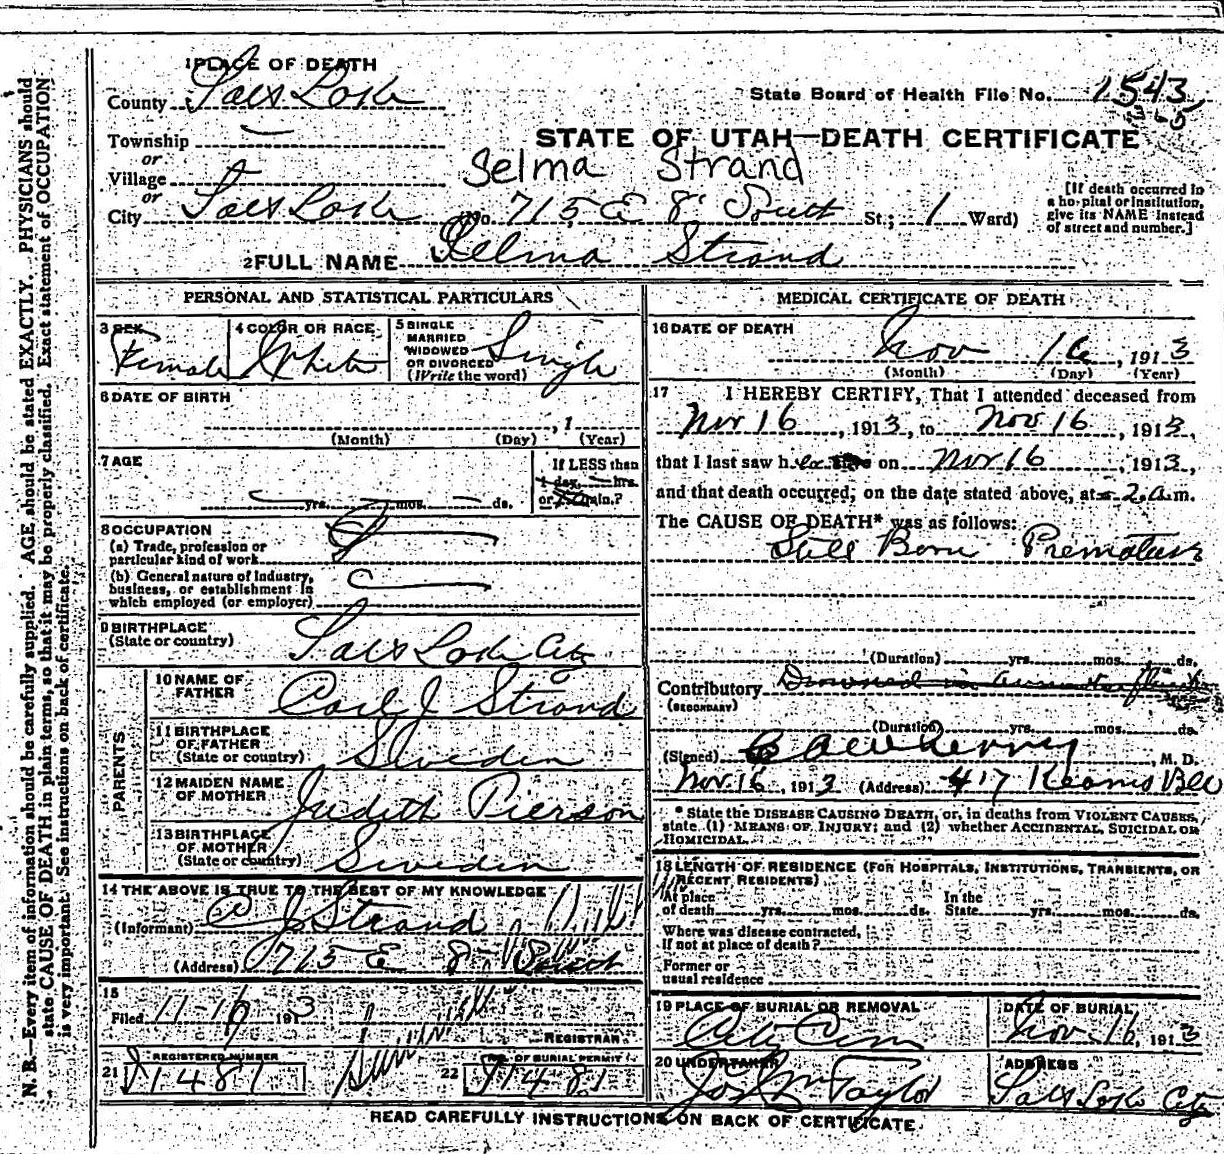 1 PLACE OF DEATH
County Salt Lake
State Board of Health File No. 1543
Township
or
Village
or
City Salt Lake
STATE OF UTAH—DEATH CERTIFICATE
Selma Strand
(No. 715 E 8 South St.; 1 Ward)
[If death occurred in a hospital or institution, give its NAME instead of street and number.]
2 FULL NAME Selma Strand
PERSONAL AND STATISTICAL PARTICULARS
3 SEX Female
4 COLOR OR RACE White
5 SINGLE MARRIED WIDOWED OR DIVORCED (Write the word) Single
6 DATE OF BIRTH
, 1
(Month) (Day) (Year)
7 AGE
yrs. mos. ds.
If LESS than
1 day, hrs.
or min.?
8 OCCUPATION
(a) Trade, profession or
particular kind of work
(b) General nature of industry,
business, or establishment in
which employed (or employer)
9 BIRTHPLACE
(State or country) Salt Lake City
PARENTS
10 NAME OF
FATHER Carl J Strand
11 BIRTHPLACE
OF FATHER
(State or country) Sweden
12 MAIDEN NAME
OF MOTHER Judith Pierson
13 BIRTHPLACE
OF MOTHER
(State or country) Sweden
14 THE ABOVE IS TRUE TO THE BEST OF MY KNOWLEDGE
(Informant) C J Strand
(Address) 715 E 8 South
15
Filed 11-16 1913
REGISTRAR
21 REGISTERED NUMBER
J1481
22 NO. OF BURIAL PERMIT
J1481
MEDICAL CERTIFICATE OF DEATH
16 DATE OF DEATH
Nov 16, 1913
(Month) (Day) (Year)
17 I HEREBY CERTIFY, That I attended deceased from
Nov 16, 1913, to Nov 16, 1913,
that I last saw her alive on Nov 16, 1913,
and that death occurred, on the date stated above, at 2 a.m.
The CAUSE OF DEATH* was as follows:
Still Born Premature
(Duration) yrs. mos. ds.
Contributory
(SECONDARY)
(Duration) yrs. mos. ds.
(Signed) , M. D.
Nov 16 1913 (Address) 417 Kearns Bld
* State the DISEASE CAUSING DEATH, or, in deaths from VIOLENT CAUSES,
state (1) MEANS OF INJURY; and (2) whether ACCIDENTAL, SUICIDAL OR
HOMICIDAL.
18 LENGTH OF RESIDENCE (FOR HOSPITALS, INSTITUTIONS, TRANSIENTS, OR
RECENT RESIDENTS)
At place
of death yrs. mos. ds.
In the
State yrs. mos. ds.
Where was disease contracted,
if not at place of death?
Former or
usual residence
19 PLACE OF BURIAL OR REMOVAL
City Cem
DATE OF BURIAL
Nov 16, 1913
20 UNDERTAKER
Jos Wm Taylor
ADDRESS
Salt Lake City
READ CAREFULLY INSTRUCTIONS ON BACK OF CERTIFICATE.
N. B.—Every item of information should be carefully supplied. AGE should be stated EXACTLY. PHYSICIANS should
state CAUSE OF DEATH in plain terms, so that it may be properly classified. Exact statement of OCCUPATION
is very important. See instructions on back of certificate.